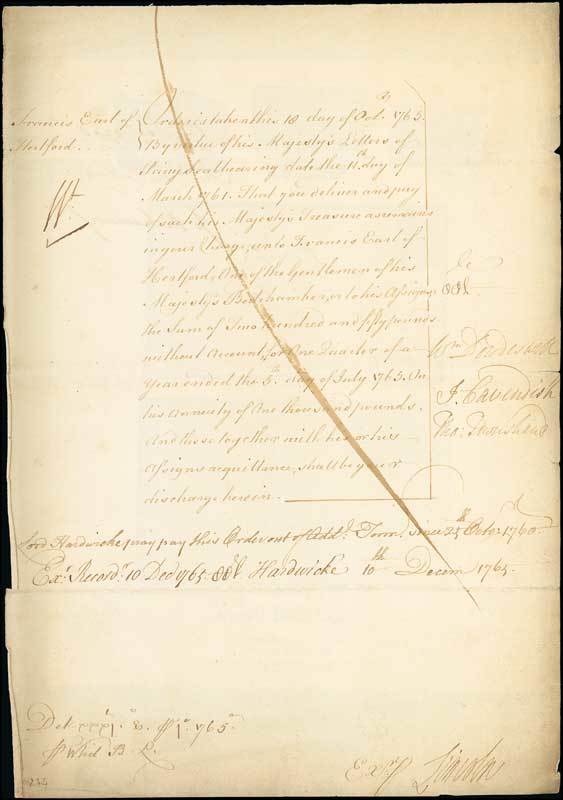 Francis Earl of
Hertford.
Order is taken this 18 day of Octr. 1765.
By virtue of his Majesty's Letters of
Privy Seal bearing date the 11th day of
March 1761. That you deliver and pay
of such his Majesty's Treasure as remains
in your Charge, unto Francis Earl of
Hertford, One of the Gentlemen of his
Majesty's Bedchamber, or to his Assigns
the Sum of Two Hundred and fifty pounds
without Account, for One Quarter of a
Year ended the 5th day of July 1765. On
his Annuity of One thousand pounds.
And these together with his or his
Assigns acquittance, shall be your
discharge herein.
Wm Dowdeswell
J. Cavendish
Tho: Townshend
Lord Hardwicke pray pay this Order out of Addl. since 25th Octor. 1760.
Exr. Recordr. 10 Decr 1765. Hardwicke 10th Decem 1765.
1765
Exr.
Lincoln